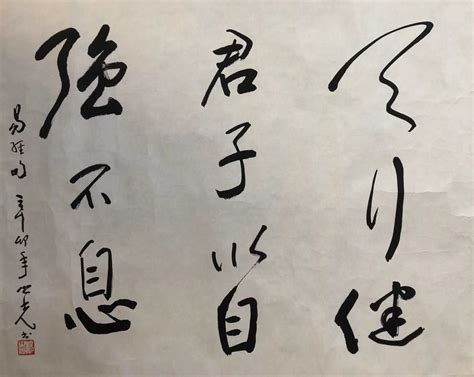 天行健
君子以自
強不息
易經句 辛卯年 世光书